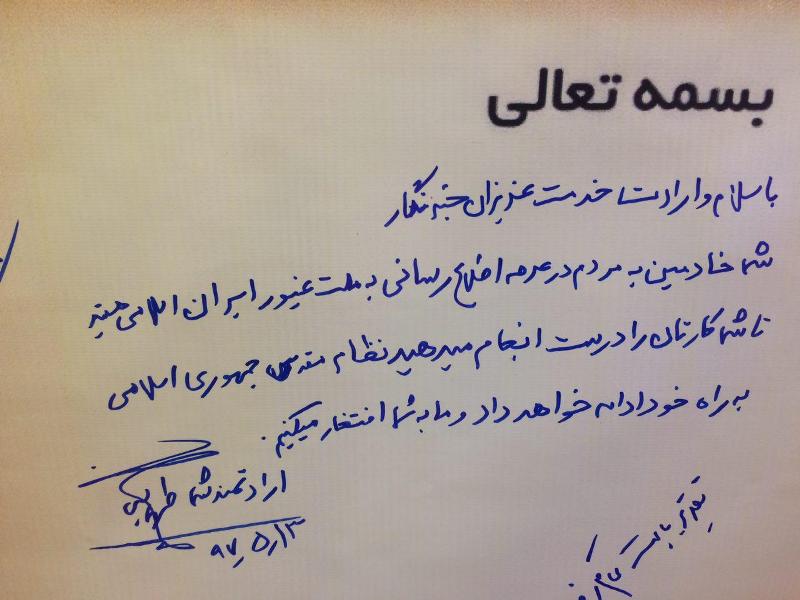 بسمه تعالی
باسلام و ارادت خدمت عزیزان خبرنگار
شما خادمین به مردم در عرصه اطلاع رسانی به ملت غیور ایران اسلامی هستید
تا شما کارتان را درست انجام میدهید نظام مقدس جمهوری اسلامی
به راه خود ادامه خواهد داد و ما به شما افتخار میکنیم.
ارادتمند شما
۹۷٫۵٫۱۳